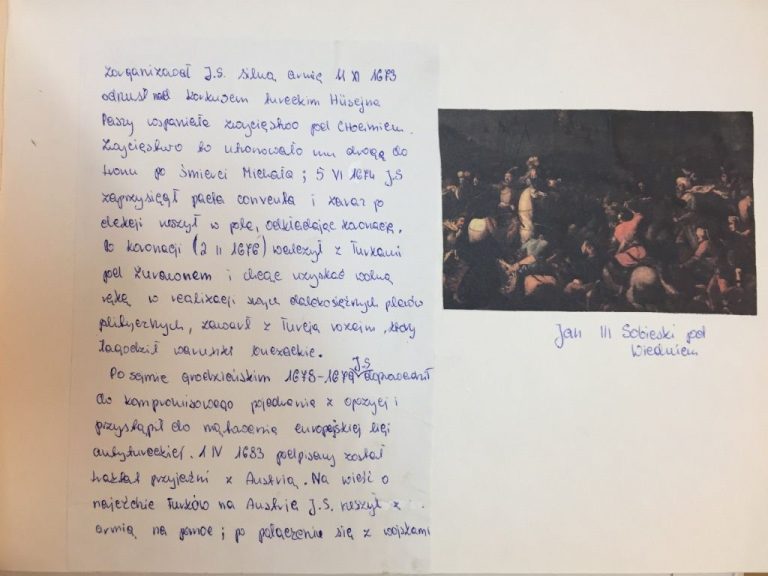 Zorganizował J.S. silną armię 11 XI 1673
odniósł nad korpusem tureckim Hüsejna
Paszy wspaniałe zwycięstwo pod Chocimiem.
Zwycięstwo to utorowało mu drogę do
tronu po śmierci Michała; 5 VI 1674 J.S
zaprzysiągł pacta conventa i zaraz po
elekcji ruszył w pole, odkładając koronację.
Po koronacji (2 II 1676) walczył z Turkami
pod Żurawnem i chcąc uzyskać wolną
rękę w realizacji swych dalekosiężnych planów
politycznych, zawarł z Turcją rozejm, który
łagodził warunki buczackie.
Po sejmie grodzieńskim 1678-1679 J.S doprowadził
do kompromisowego pojednania z opozycją i
przystąpił do montowania europejskiej ligi
antytureckiej. 1 IV 1683 podpisany został
traktat przyjaźni z Austrią. Na wieść o
najeździe Turków na Austrię J.S. ruszył z
armią na pomoc; po połączeniu się z wojskami
Jan III Sobieski pod
Wiedniem